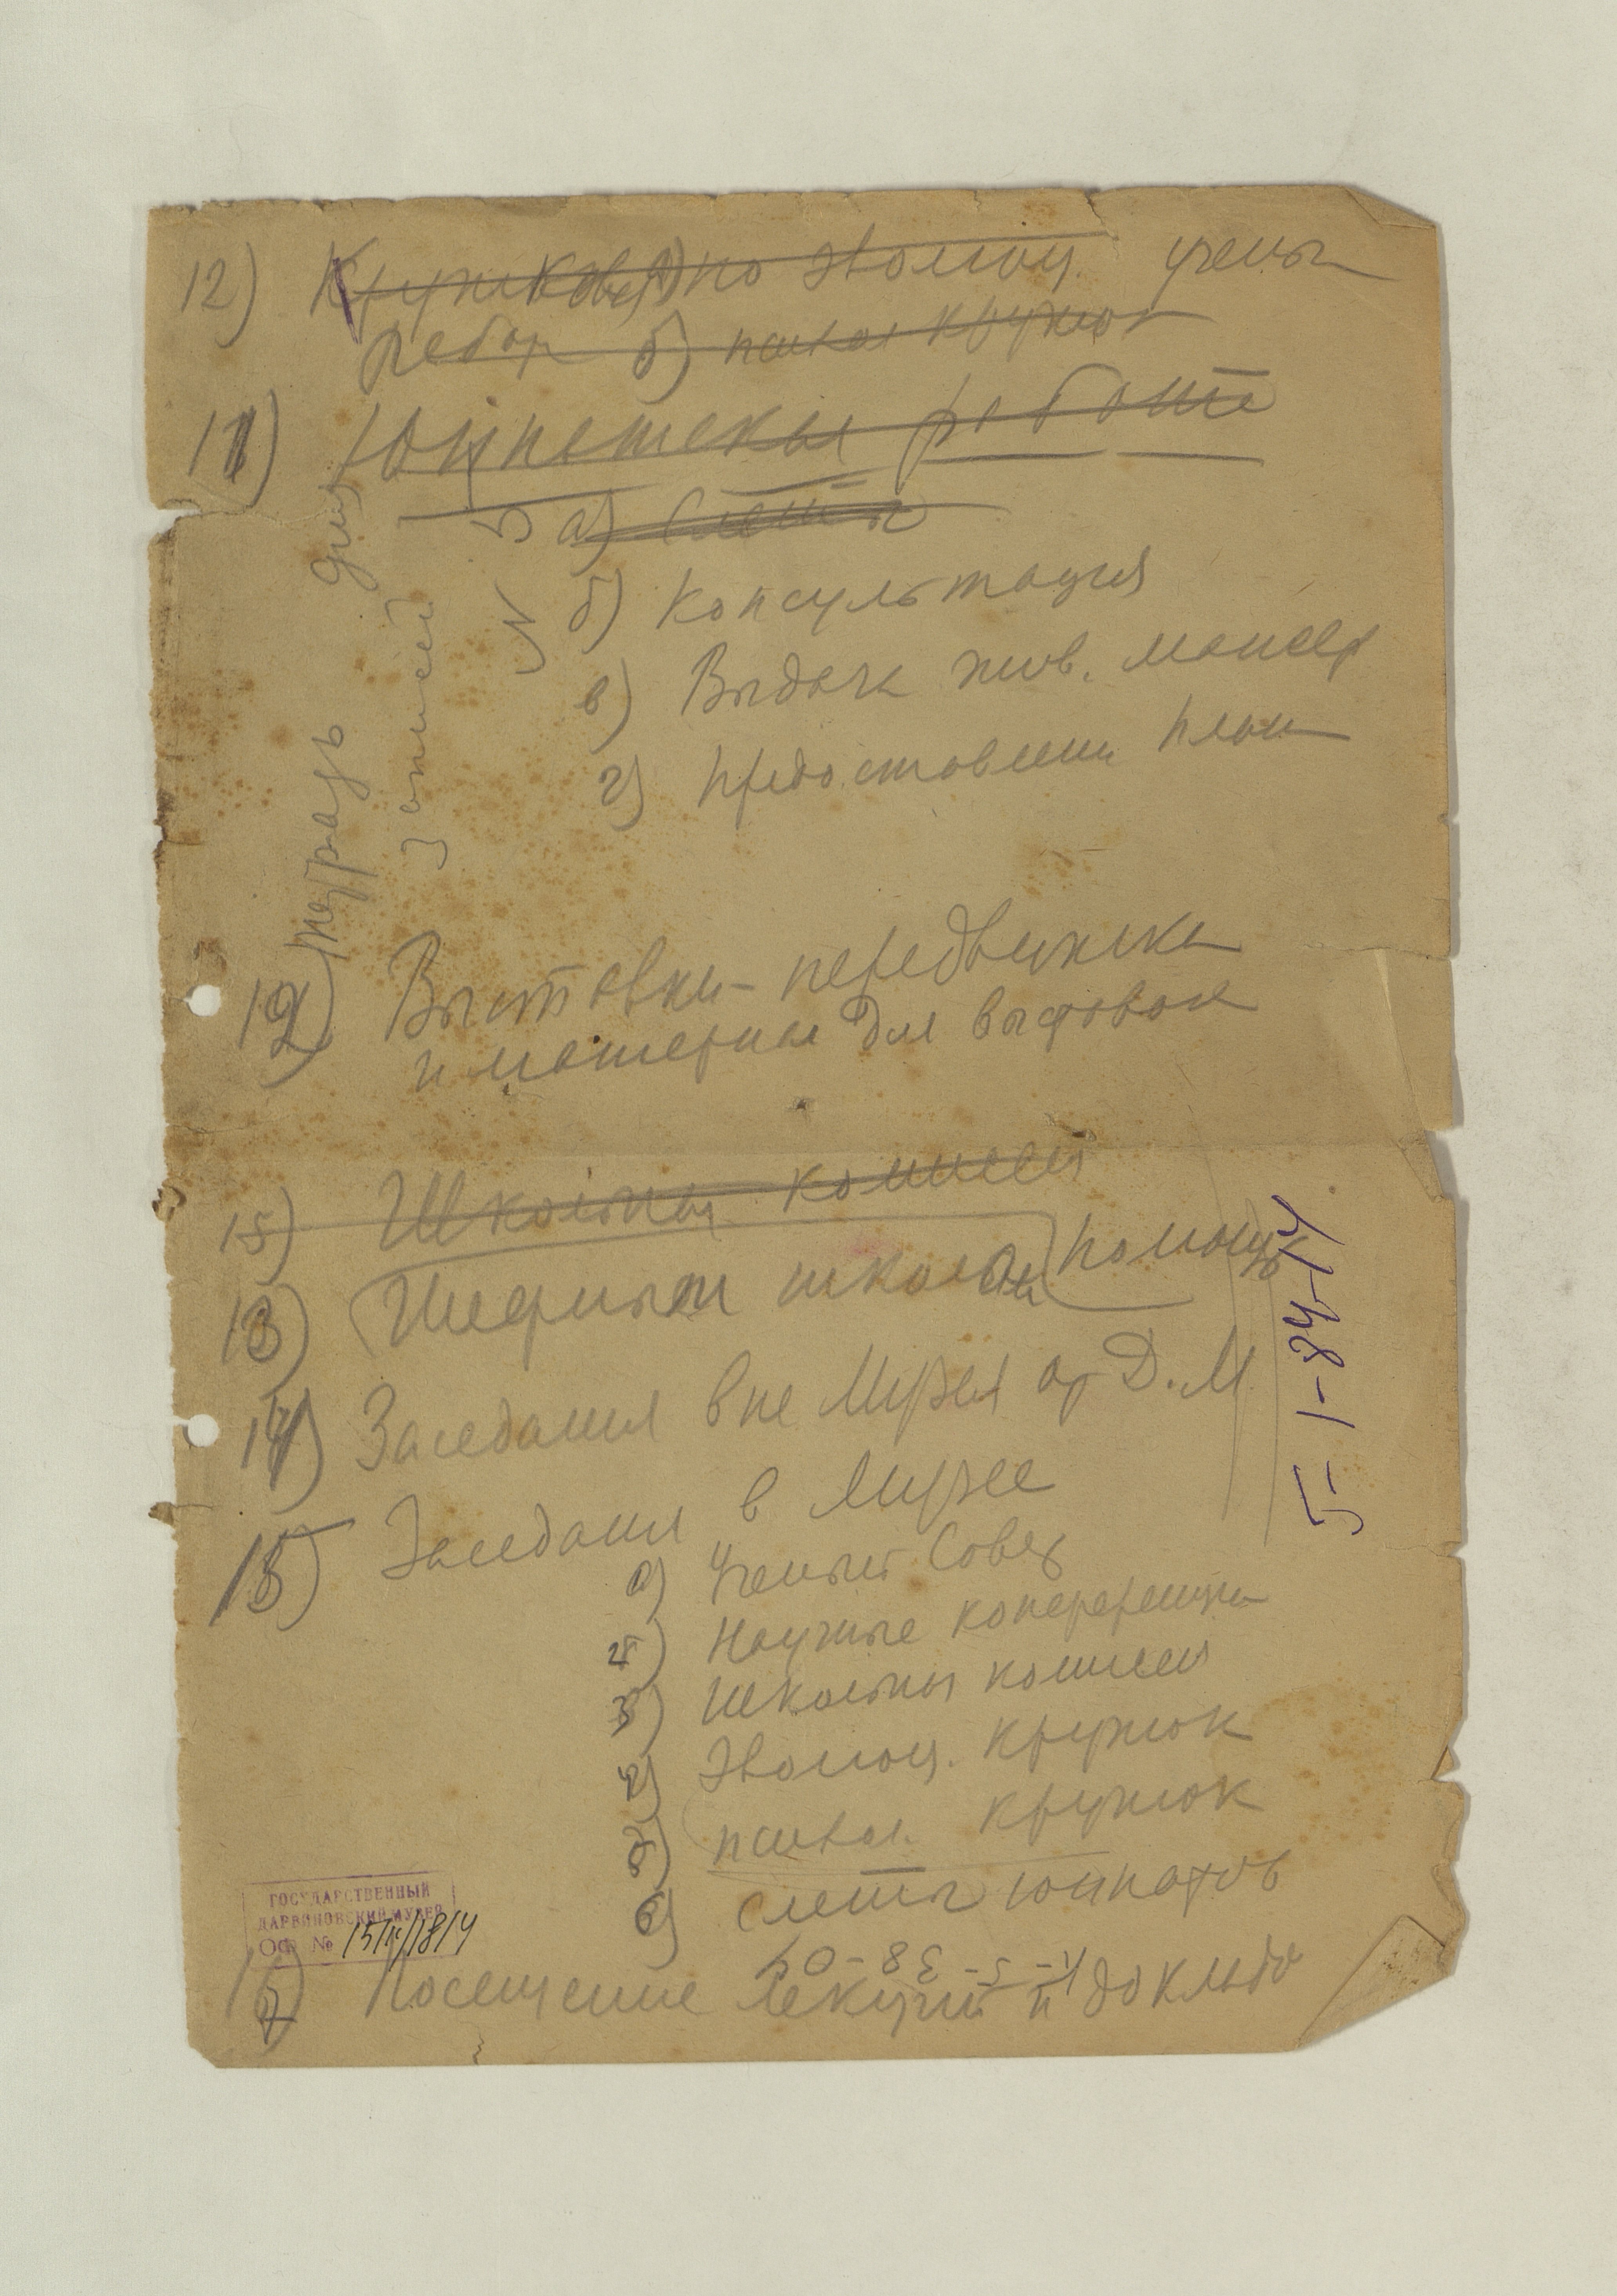 12) Кружковая а) по эволюц. учены
работ б) психол кружок
11) Юннатская работа
а) Слеты
б) Консультация
в) Выдача жив. матер
г) предоставлени план
Тетрадь для
записей
N 5
12) Выставки-передвижки
и материал для выставок
15) Школьная комиссия
13) Шефство школам помощь
14) Заседания вне Музея от Д.М.
15) Заседания в Музее
а) Ученый Совет
2) Научные конференции
3) Школьная комиссия
4) Эволюц. кружок
5) психол. кружок
6) слеты юннатов
16) Посещение лекций и докладо
5-1-84-14
ГОСУДАРСТВЕННЫЙ
ДАРВИНОВСКИЙ МУЗЕЙ
ОФ №